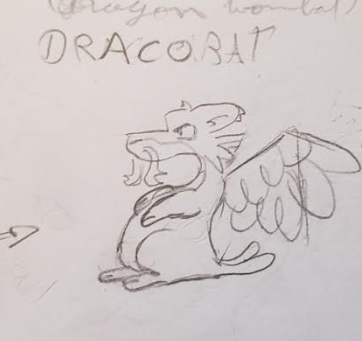 (dragon wombat)
DRACOBAT